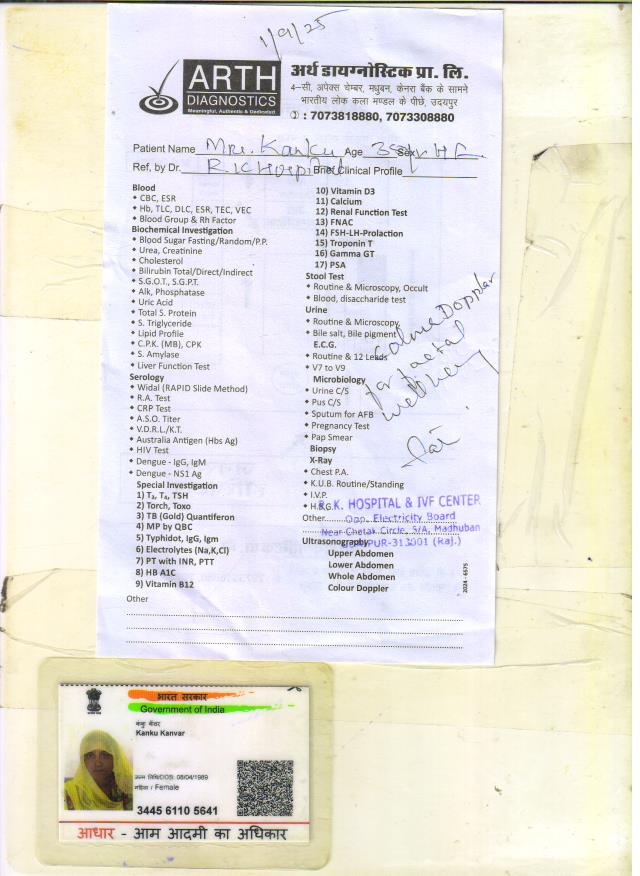 1/9/25
ARTH
DIAGNOSTICS
Meaningful, Authentic & Dedicated
अर्थ डायग्नोस्टिक प्रा. लि.
4-सी, अपेक्स चेम्बर, मधुबन, केनरा बैंक के सामने
भारतीय लोक कला मण्डल के पीछे, उदयपुर
: 7073818880, 7073308880
Patient Name Mrs. Kanku Age 35y Sex F
Ref, by Dr. R.K Hospital Brief Clinical Profile
Blood
CBC, ESR
Hb, TLC, DLC, ESR, TEC, VEC
Blood Group & Rh Factor
Biochemical Investigation
Blood Sugar Fasting/Random/P.P.
Urea, Creatinine
Cholesterol
Bilirubin Total/Direct/Indirect
S.G.O.T., S.G.P.T.
Alk, Phosphatase
Uric Acid
Total S. Protein
S. Triglyceride
Lipid Profile
C.P.K. (MB), CPK
S. Amylase
Liver Function Test
Serology
Widal (RAPID Slide Method)
R.A. Test
CRP Test
A.S.O. Titer
V.D.R.L./K.T.
Australia Antigen (Hbs Ag)
HIV Test
Dengue - IgG, IgM
Dengue - NS1 Ag
Special Investigation
1) T₃, T₄, TSH
2) Torch, Toxo
3) TB (Gold) Quantiferon
4) MP by QBC
5) Typhidot, IgG, Igm
6) Electrolytes (Na,K,Cl)
7) PT with INR, PTT
8) HB A1C
9) Vitamin B12
10) Vitamin D3
11) Calcium
12) Renal Function Test
13) FNAC
14) FSH-LH-Prolaction
15) Troponin T
16) Gamma GT
17) PSA
Stool Test
Routine & Microscopy, Occult
Blood, disaccharide test
Urine
Routine & Microscopy
Bile salt, Bile pigment
E.C.G.
Routine & 12 Leads
V7 to V9
Microbiology
Urine C/S
Pus C/S
Sputum for AFB
Pregnancy Test
Pap Smear
Biopsy
X-Ray
Chest P.A.
K.U.B. Routine/Standing
I.V.P.
H.S.G.
Other
Ultrasonography
Upper Abdomen
Lower Abdomen
Whole Abdomen
Colour Doppler
Colour Doppler
for faetal
well being
R. K. HOSPITAL & IVF CENTER
Opp. Electricity Board
Near Chetak Circle, 5/A, Madhuban
UDAIPUR-313001 (Raj.)
2024 - 6575
Other
भारत सरकार
Government of India
कंकु कँवर
Kanku Kanvar
जन्म तिथि/DOB: 08/04/1989
महिला / Female
3445 6110 5641
आधार - आम आदमी का अधिकार